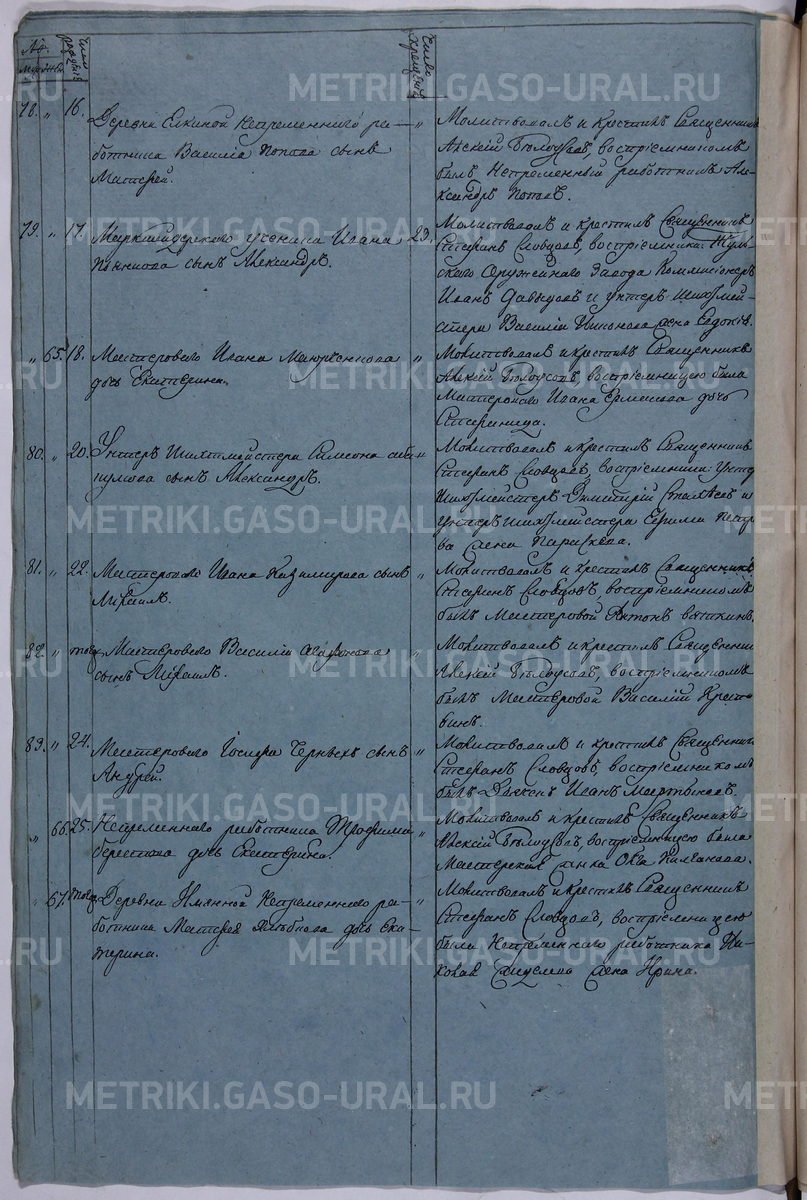 №.
Число рожденiя
Число крещенiя
78. " 16. Деревни Елкиной Непременнаго ра-
ботника Василiя Попова сынъ
Матѳей.
" Молитвовалъ и крестилъ Священникъ
Алексiй Бѣлоусовъ, воспрiемникомъ
былъ Непременный работникъ Але-
ксандръ Поповъ.
79. " 17. Маркшейдерскаго ученика Ивана
сынъ Александръ.
23. Молитвовалъ и крестилъ Священникъ
Стефанъ Словцовъ, воспрiемники: Туль-
скаго Оружейнаго Завода Коммисiонеръ
Иванъ Давыдовъ и унтеръ шихтмей-
стера Василiя жена Евдокiя.
" 65. 18. Мастероваго Ивана
дочь Екатерина.
" Молитвовалъ и крестилъ Священникъ
Алексiй Бѣлоусовъ воспрiемницею была
Мастероваго Ивана Ермакова дочь
80. " 20. Унтеръ Шихтмейстера Симеона
сынъ Александръ.
" Молитвовалъ и крестилъ Священникъ
Стефанъ Словцовъ, воспрiемники: Унтеръ
Шихтмейстеръ Димитрiй и
унтеръ шихтмейстера Ефима Петро
ва жена Параскева.
81. " 22. Мастероваго Ивана Казимирова сынъ
Михаилъ.
" Молитвовалъ и крестилъ Священникъ
Стефанъ Словцовъ, воспрiемникомъ
былъ Мастеровой Антонъ Вяткинъ.
82. " тогож Мастероваго Василiя
сынъ Михаилъ.
" Молитвовалъ и крестилъ Священникъ
Алексiй Бѣлоусовъ, воспрiемникомъ
былъ Мастеровой Василiй
83. " 24. Мастероваго Iосифа Черныхъ сынъ
Андрей.
" Молитвовалъ и крестилъ Священникъ
Стефанъ Словцовъ, воспрiемникомъ
былъ Дьяконъ Иванъ
" 66. 25. Непременнаго работника Трофима
Берестова дочь Екатерина.
" Молитвовалъ и крестилъ Священникъ
Алексiй Бѣлоусовъ, воспрiемницею была
Мастерская жена
" 67. тогож Деревни Непременнаго ра-
ботника Матѳея Хлѣбнова дочь Ека-
терина.
" Молитвовалъ и крестилъ Священникъ
Стефанъ Словцовъ, воспрiемницею
была Непременнаго работника Ни-
колая жена Ирина.
METRIKI.GASO-URAL.RU